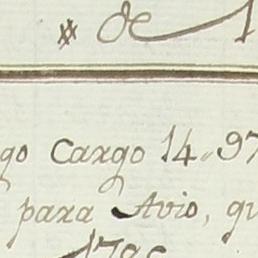 # de 1
go Cargo 14"97
para Avio, qu